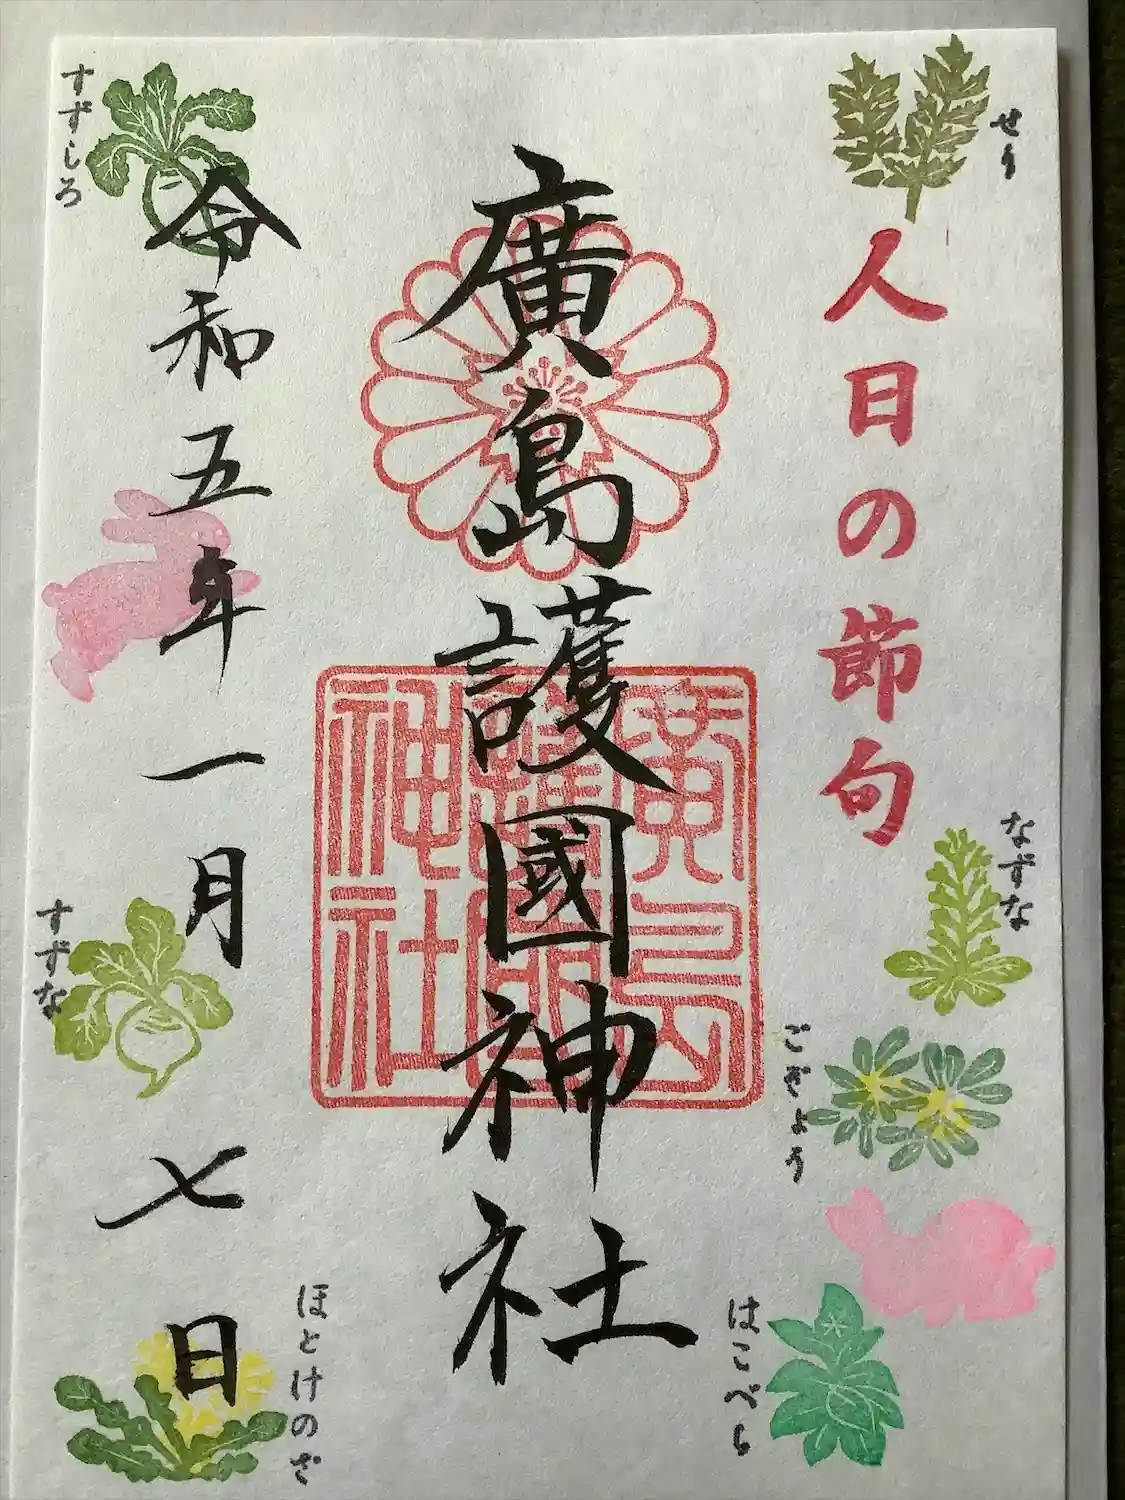 せり
人日の節句
なずな
ごぎょう
はこべら
廣島護國神社
廣島護國神社
ほとけのざ
令和五年一月七日
すずしろ
すずな